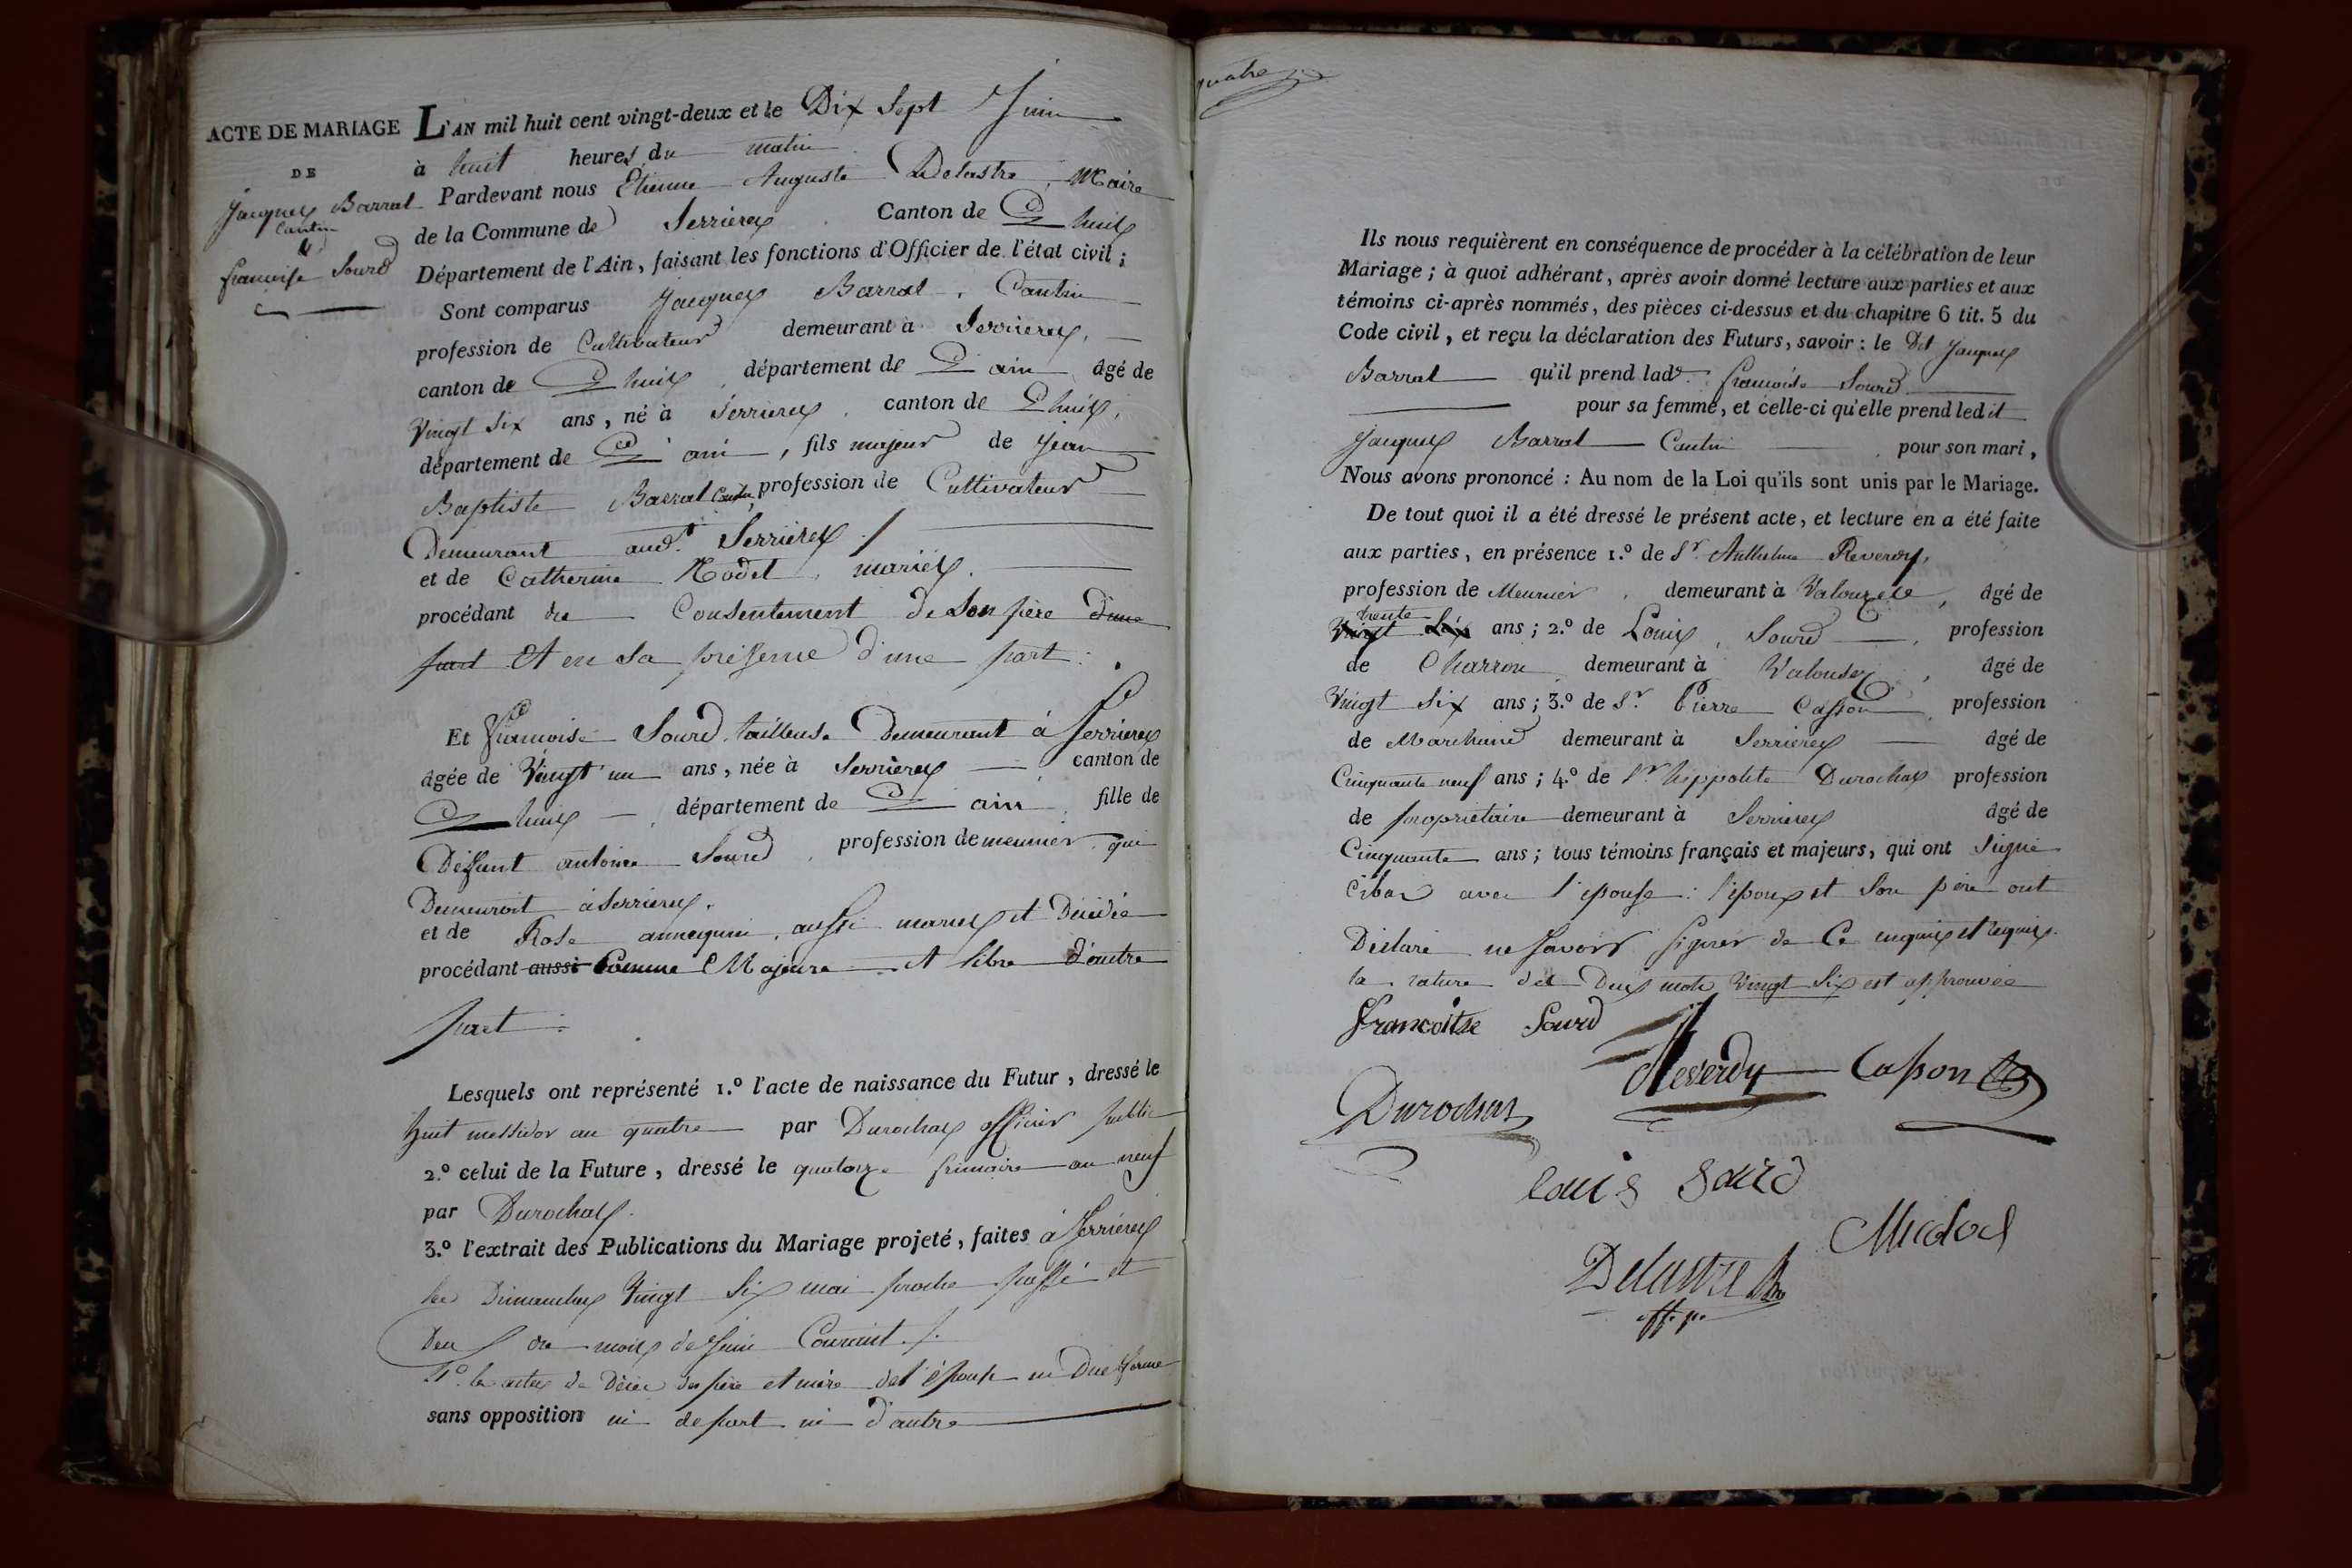 ACTE DE MARIAGE
DE
Jacques Barral
Cantin
&
francoise Sourd
L'AN mil huit cent vingt-deux et le Dix Sept Juin
à huit heures du matin
Pardevant nous Etienne Auguste Delastre, Maire
de la Commune de Serrieres Canton de L huis
Département de l'Ain, faisant les fonctions d'Officier de l'état civil;
Sont comparus Jacques Barral, Cantin
profession de Cultivateur demeurant à Serrieres,
canton de L huis, département de L ain âgé de
Vingt Six ans, né à Serrieres, canton de Lhuis,
département de L ain, fils majeur de Jean
Baptiste Barral Cantin, profession de Cultivateur
Demeurant aud.t Serrières
et de Catherine Modet, mariés,
procédant du Consentement de Son père d'une
part Et en sa présence d'une part:
Et francoise Sourd, tailleuse Demeurant à Serrieres
âgée de Vingt un ans, née à Serrières, canton de
L huis, département de L ain, fille de
Deffunt antoine Sourd, profession de meunier, qui
Demeuroit à Serrieres,
et de Rose, aussi mariés et Décédée
procédant aussi Comme Majeure Et libre d'autre
part:
Lesquels ont représenté 1.º l'acte de naissance du Futur, dressé le
huit messidor an quatre par Durochas officier public
2.º celui de la Future, dressé le quatorze frimaire an neuf
par Durochas.
3.º l'extrait des Publications du Mariage projeté, faites à Serrieres
les Dimanches Vingt Six mai proche passé et
Deux du mois de Juin Courant.
4º les actes de Décès des père et mère de l'épouse en Due forme
sans opposition ni de part ni d'autre
quatre
Ils nous requièrent en conséquence de procéder à la célébration de leur
Mariage; à quoi adhérant, après avoir donné lecture aux parties et aux
témoins ci-après nommés, des pièces ci-dessus et du chapitre 6 tit. 5 du
Code civil, et reçu la déclaration des Futurs, savoir: le Dit Jacques
Barral qu'il prend lad.e francoise Sourd
pour sa femme, et celle-ci qu'elle prend ledit
Jacques Barral Cantin pour son mari,
Nous avons prononcé: Au nom de la Loi qu'ils sont unis par le Mariage.
De tout quoi il a été dressé le présent acte, et lecture en a été faite
aux parties, en présence 1.º de S.r Anthelme Reverdy,
profession de Meunier, demeurant à, âgé de
trente
Vingt Six ans; 2.º de Louis Sourd, profession
de Charron demeurant à Valouse, âgé de
Vingt Six ans; 3.º de S.r Pierre Casson, profession
de Marchand demeurant à Serrieres âgé de
Cinquante neuf ans; 4.º de S.r hippolite Durochas profession
de propriétaire demeurant à Serrieres âgé de
Cinquante ans; tous témoins français et majeurs, qui ont Signé
avec l'epouse: l'epoux et Son père ont
Déclaré ne Savoir Signer de Ce enquis et requis.
la rature des Deux mots Vingt Six est approuvée
francoise Sourd
Reverdy Casson
Durochas
louis sourd
Midod
Delastre
off. p.